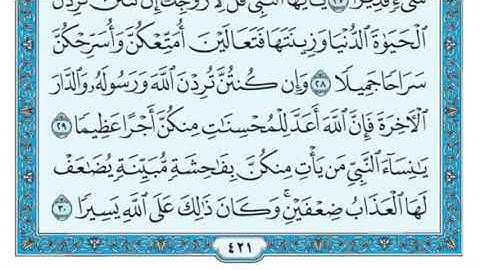 شَىْءٍ قَدِيرًا ٢٧ يَـٰٓأَيُّهَا ٱلنَّبِىُّ قُل لِّأَزْوَٰجِكَ إِن كُنتُنَّ تُرِدْنَ
ٱلْحَيَوٰةَ ٱلدُّنْيَا وَزِينَتَهَا فَتَعَالَيْنَ أُمَتِّعْكُنَّ وَأُسَرِّحْكُنَّ
سَرَاحًا جَمِيلًا ٢٨ وَإِن كُنتُنَّ تُرِدْنَ ٱللَّهَ وَرَسُولَهُۥ وَٱلدَّارَ
ٱلْـَٔاخِرَةَ فَإِنَّ ٱللَّهَ أَعَدَّ لِلْمُحْسِنَـٰتِ مِنكُنَّ أَجْرًا عَظِيمًا ٢٩
يَـٰنِسَآءَ ٱلنَّبِىِّ مَن يَأْتِ مِنكُنَّ بِفَـٰحِشَةٍ مُّبَيِّنَةٍ يُضَـٰعَفْ
لَهَا ٱلْعَذَابُ ضِعْفَيْنِ ۚ وَكَانَ ذَٰلِكَ عَلَى ٱللَّهِ يَسِيرًا ٣٠
٤٢١